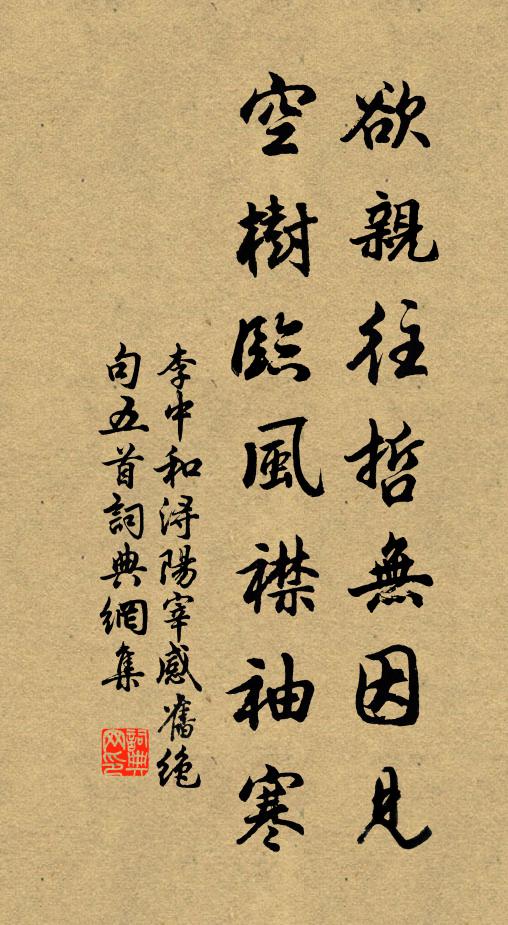 欲親往哲無因見
空樹臨風襟袖寒
李中和潯陽宰感舊絶
句五首詞典網集
詞典
网印